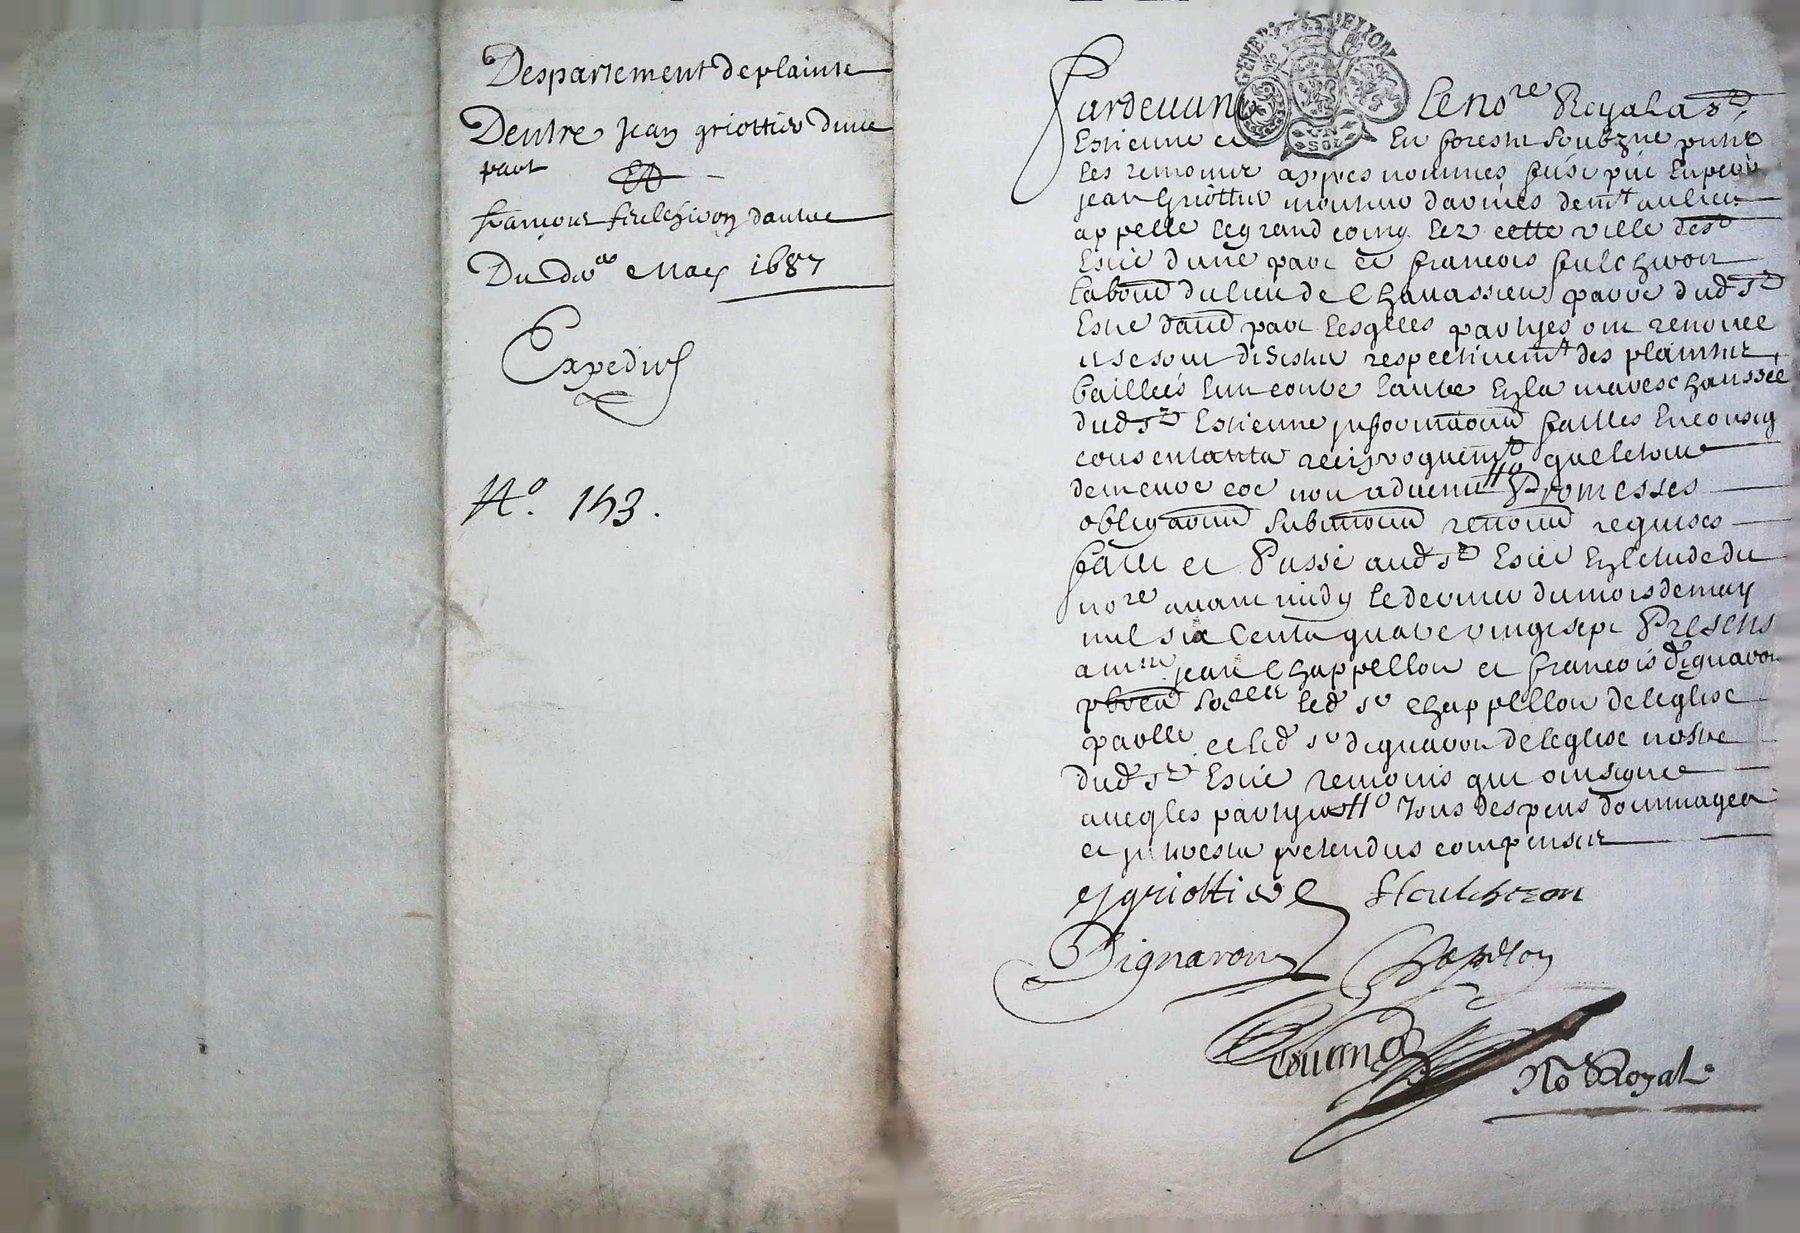 Despartement de plainte
Dentre Jean griottier dune
part Et
françois fulchiron dautre
Du der May 1687
Expedié
No. 143.
GENER DE LION
SOLZ
Pardevant Le nore Royal a St
Estienne en forestz soubzne present
les temoins appres nommes
jean Griottier mouleur darmes demt au lieu
appelle le grand coing lez cette ville de St
Estne dune part et françois fulchiron
labour du lieu de Chavassieu parre dud St
Estne daud part lesqlles partyes ont renoncé
et se sont disistées respectivemt des plaintes
baillées lun contre lautre En la mareschaussée
dud St Estienne informaons faittes Enconsiq
consentants reciproquemt que le tout
demeure coe non advenu Promesses
obligaons submaons renoaons requises
fait et Passé aud St Estne En letude du
nore avant midy le dernier du mois de may
mil six cents quatre vingt sept Presens
à jean Chappellon et françois dignaron
pbres led sr Chappellon de leglise
parlle et led sr dignaron de leglise nostre
dud St Estne temoins qui ont signé
avec les partyes tous despens dommages
et interests pretendus compenses
Jgriottier fleulcheron
Dignaron Chapelon
No Royal